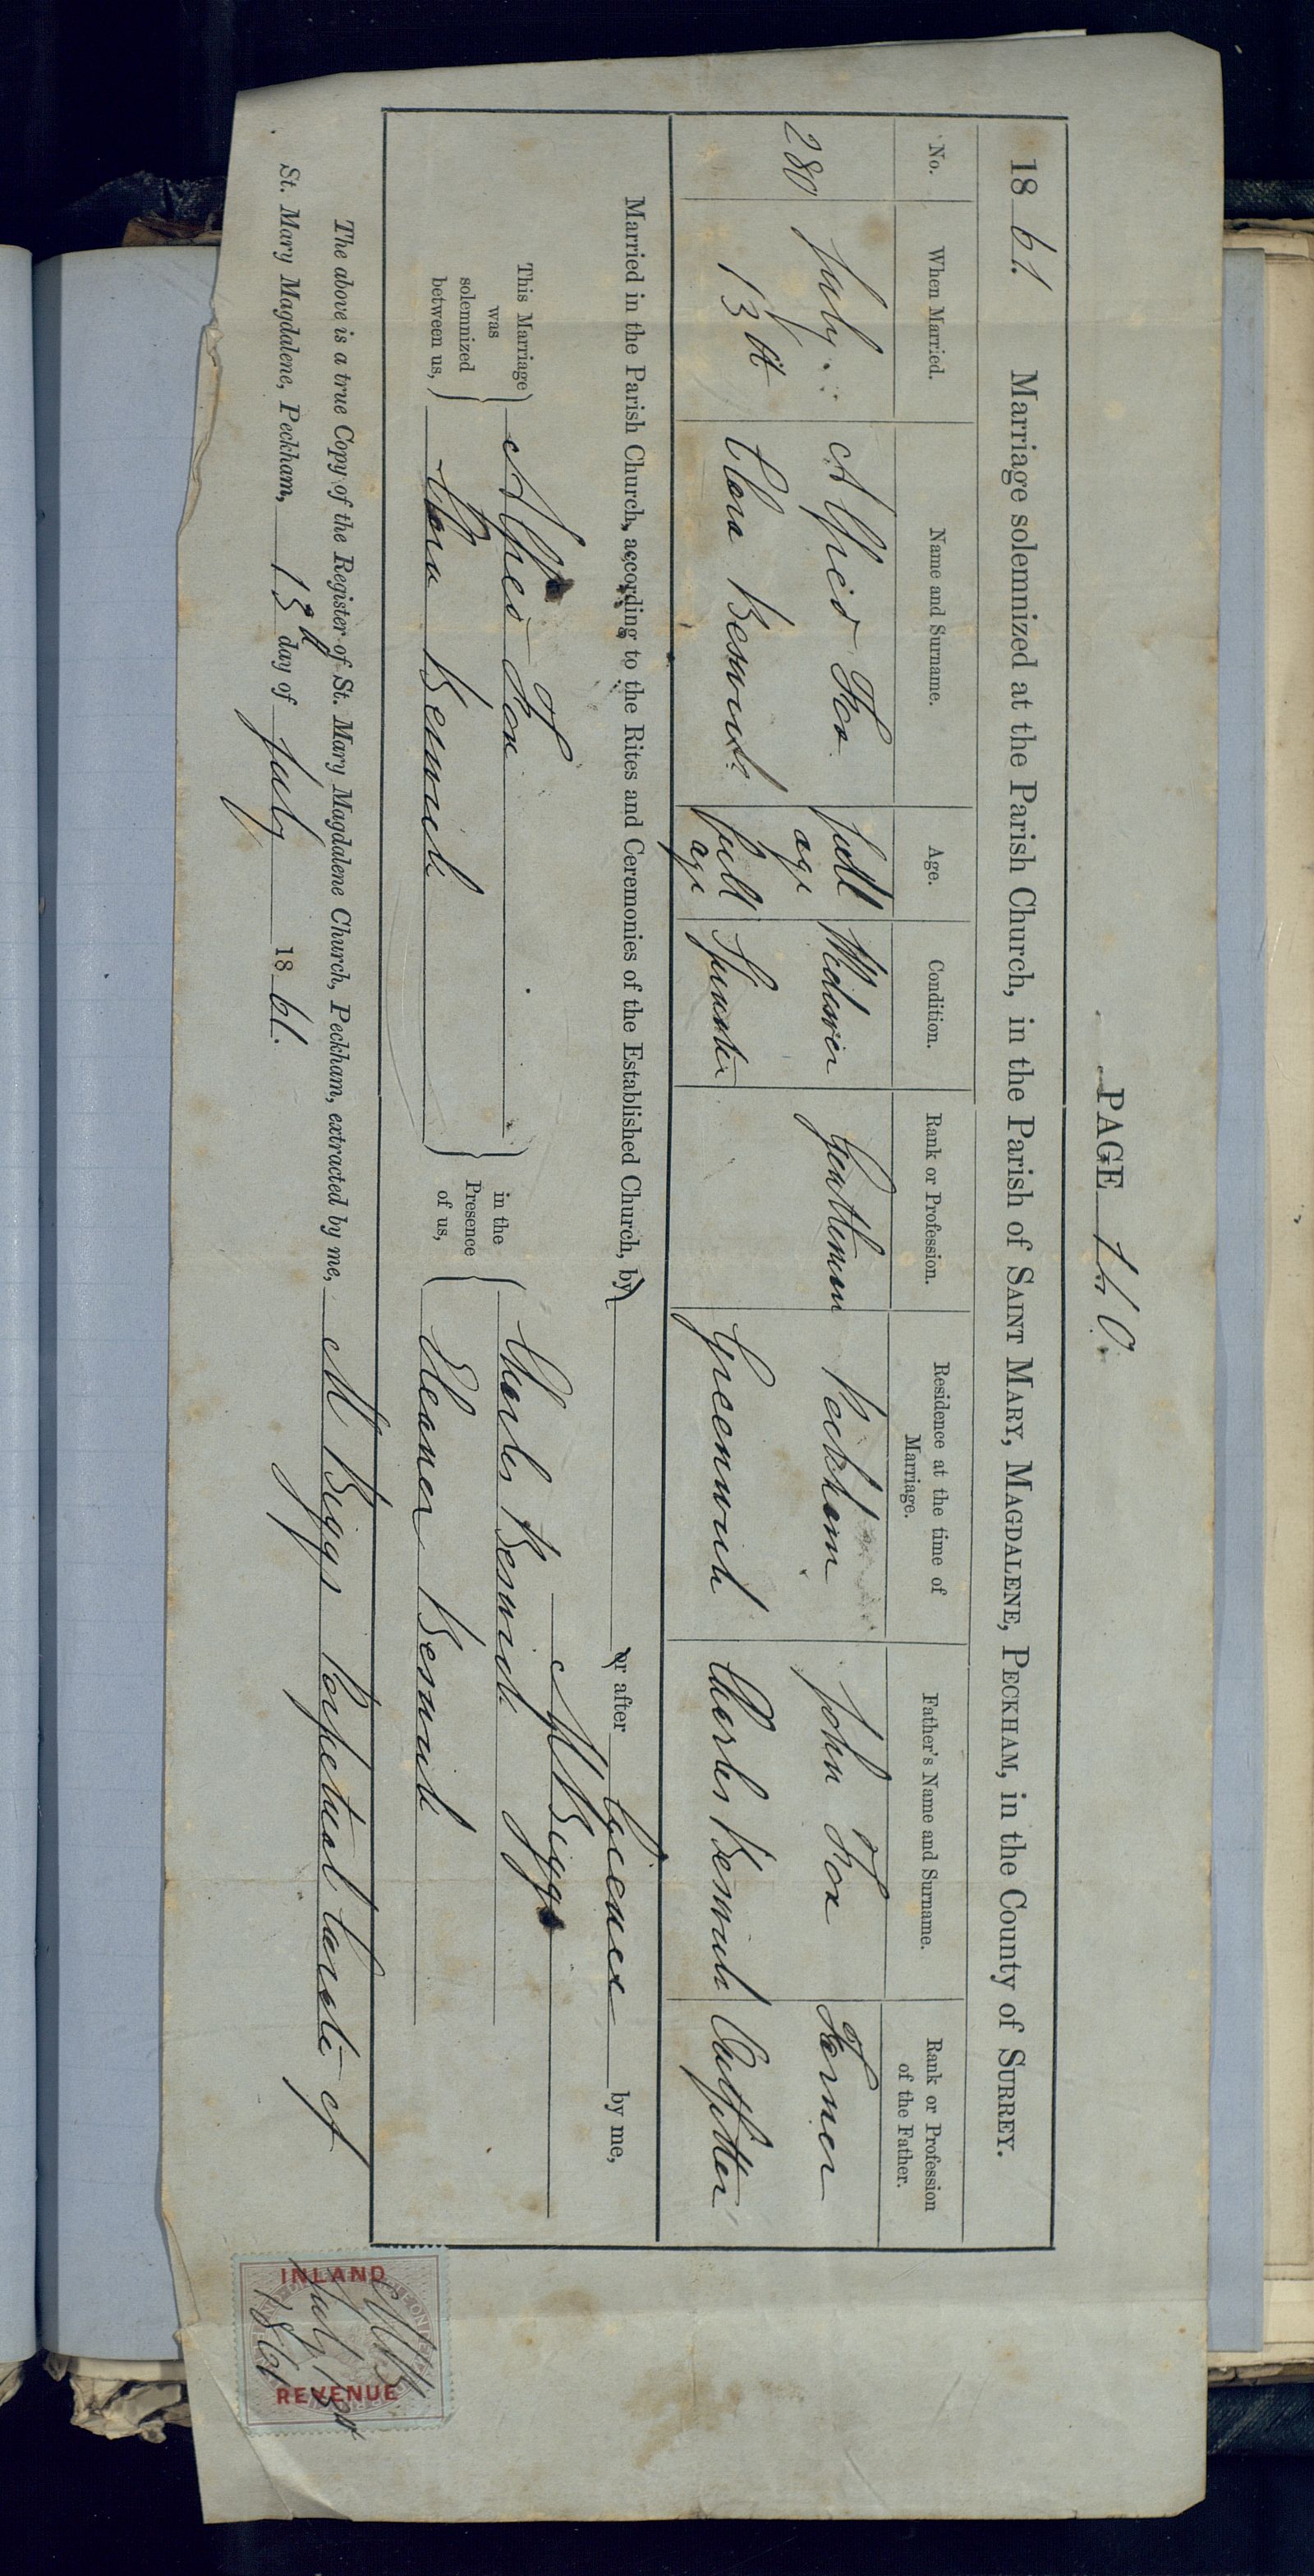 PAGE 140.
1861. Marriage solemnized at the Parish Church, in the Parish of SAINT MARY, MAGDALENE, PECKHAM, in the County of SURREY.
No. When Married. Name and Surname. Age. Condition. Rank or Profession. Residence at the time of Marriage. Father's Name and Surname. Rank or Profession of the Father.
280 July 13th Alfred Fox full age Widower Gentleman Peckham John Fox Farmer
Clara Beswick full age Spinster Greenwich Charles Beswick Outfitter
Married in the Parish Church, according to the Rites and Ceremonies of the Established Church, by or after Licence by me,
M Biggs
This Marriage was solemnized between us,
Alfred Fox
Clara Beswick
in the Presence of us,
Charles Beswick
Eleanor Beswick
The above is a true Copy of the Register of St. Mary Magdalene Church, Peckham, extracted by me, M Biggs Perpetual Curate of
St. Mary Magdalene, Peckham, 13th day of July 1861.
INLAND
MB
July 13th
1861
REVENUE